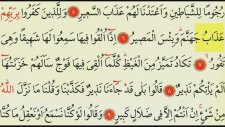 رُجُومًا لِّلشَّيَاطِينِ وَأَعْتَدْنَا لَهُمْ عَذَابَ السَّعِيرِ ۝٥ وَلِلَّذِينَ كَفَرُوا بِرَبِّهِمْ
عَذَابُ جَهَنَّمَ وَبِئْسَ الْمَصِيرُ ۝٦ إِذَا أُلْقُوا فِيهَا سَمِعُوا لَهَا شَهِيقًا وَهِيَ
تَفُورُ ۝٧ تَكَادُ تَمَيَّزُ مِنَ الْغَيْظِ كُلَّمَا أُلْقِيَ فِيهَا فَوْجٌ سَأَلَهُمْ خَزَنَتُهَا
أَلَمْ يَأْتِكُمْ نَذِيرٌ ۝٨ قَالُوا بَلَىٰ قَدْ جَاءَنَا نَذِيرٌ فَكَذَّبْنَا وَقُلْنَا مَا نَزَّلَ اللَّهُ
مِن شَيْءٍ إِنْ أَنتُمْ إِلَّا فِي ضَلَالٍ كَبِيرٍ ۝٩ وَقَالُوا لَوْ كُنَّا نَسْمَعُ أَوْ نَعْقِلُ مَا كُنَّا